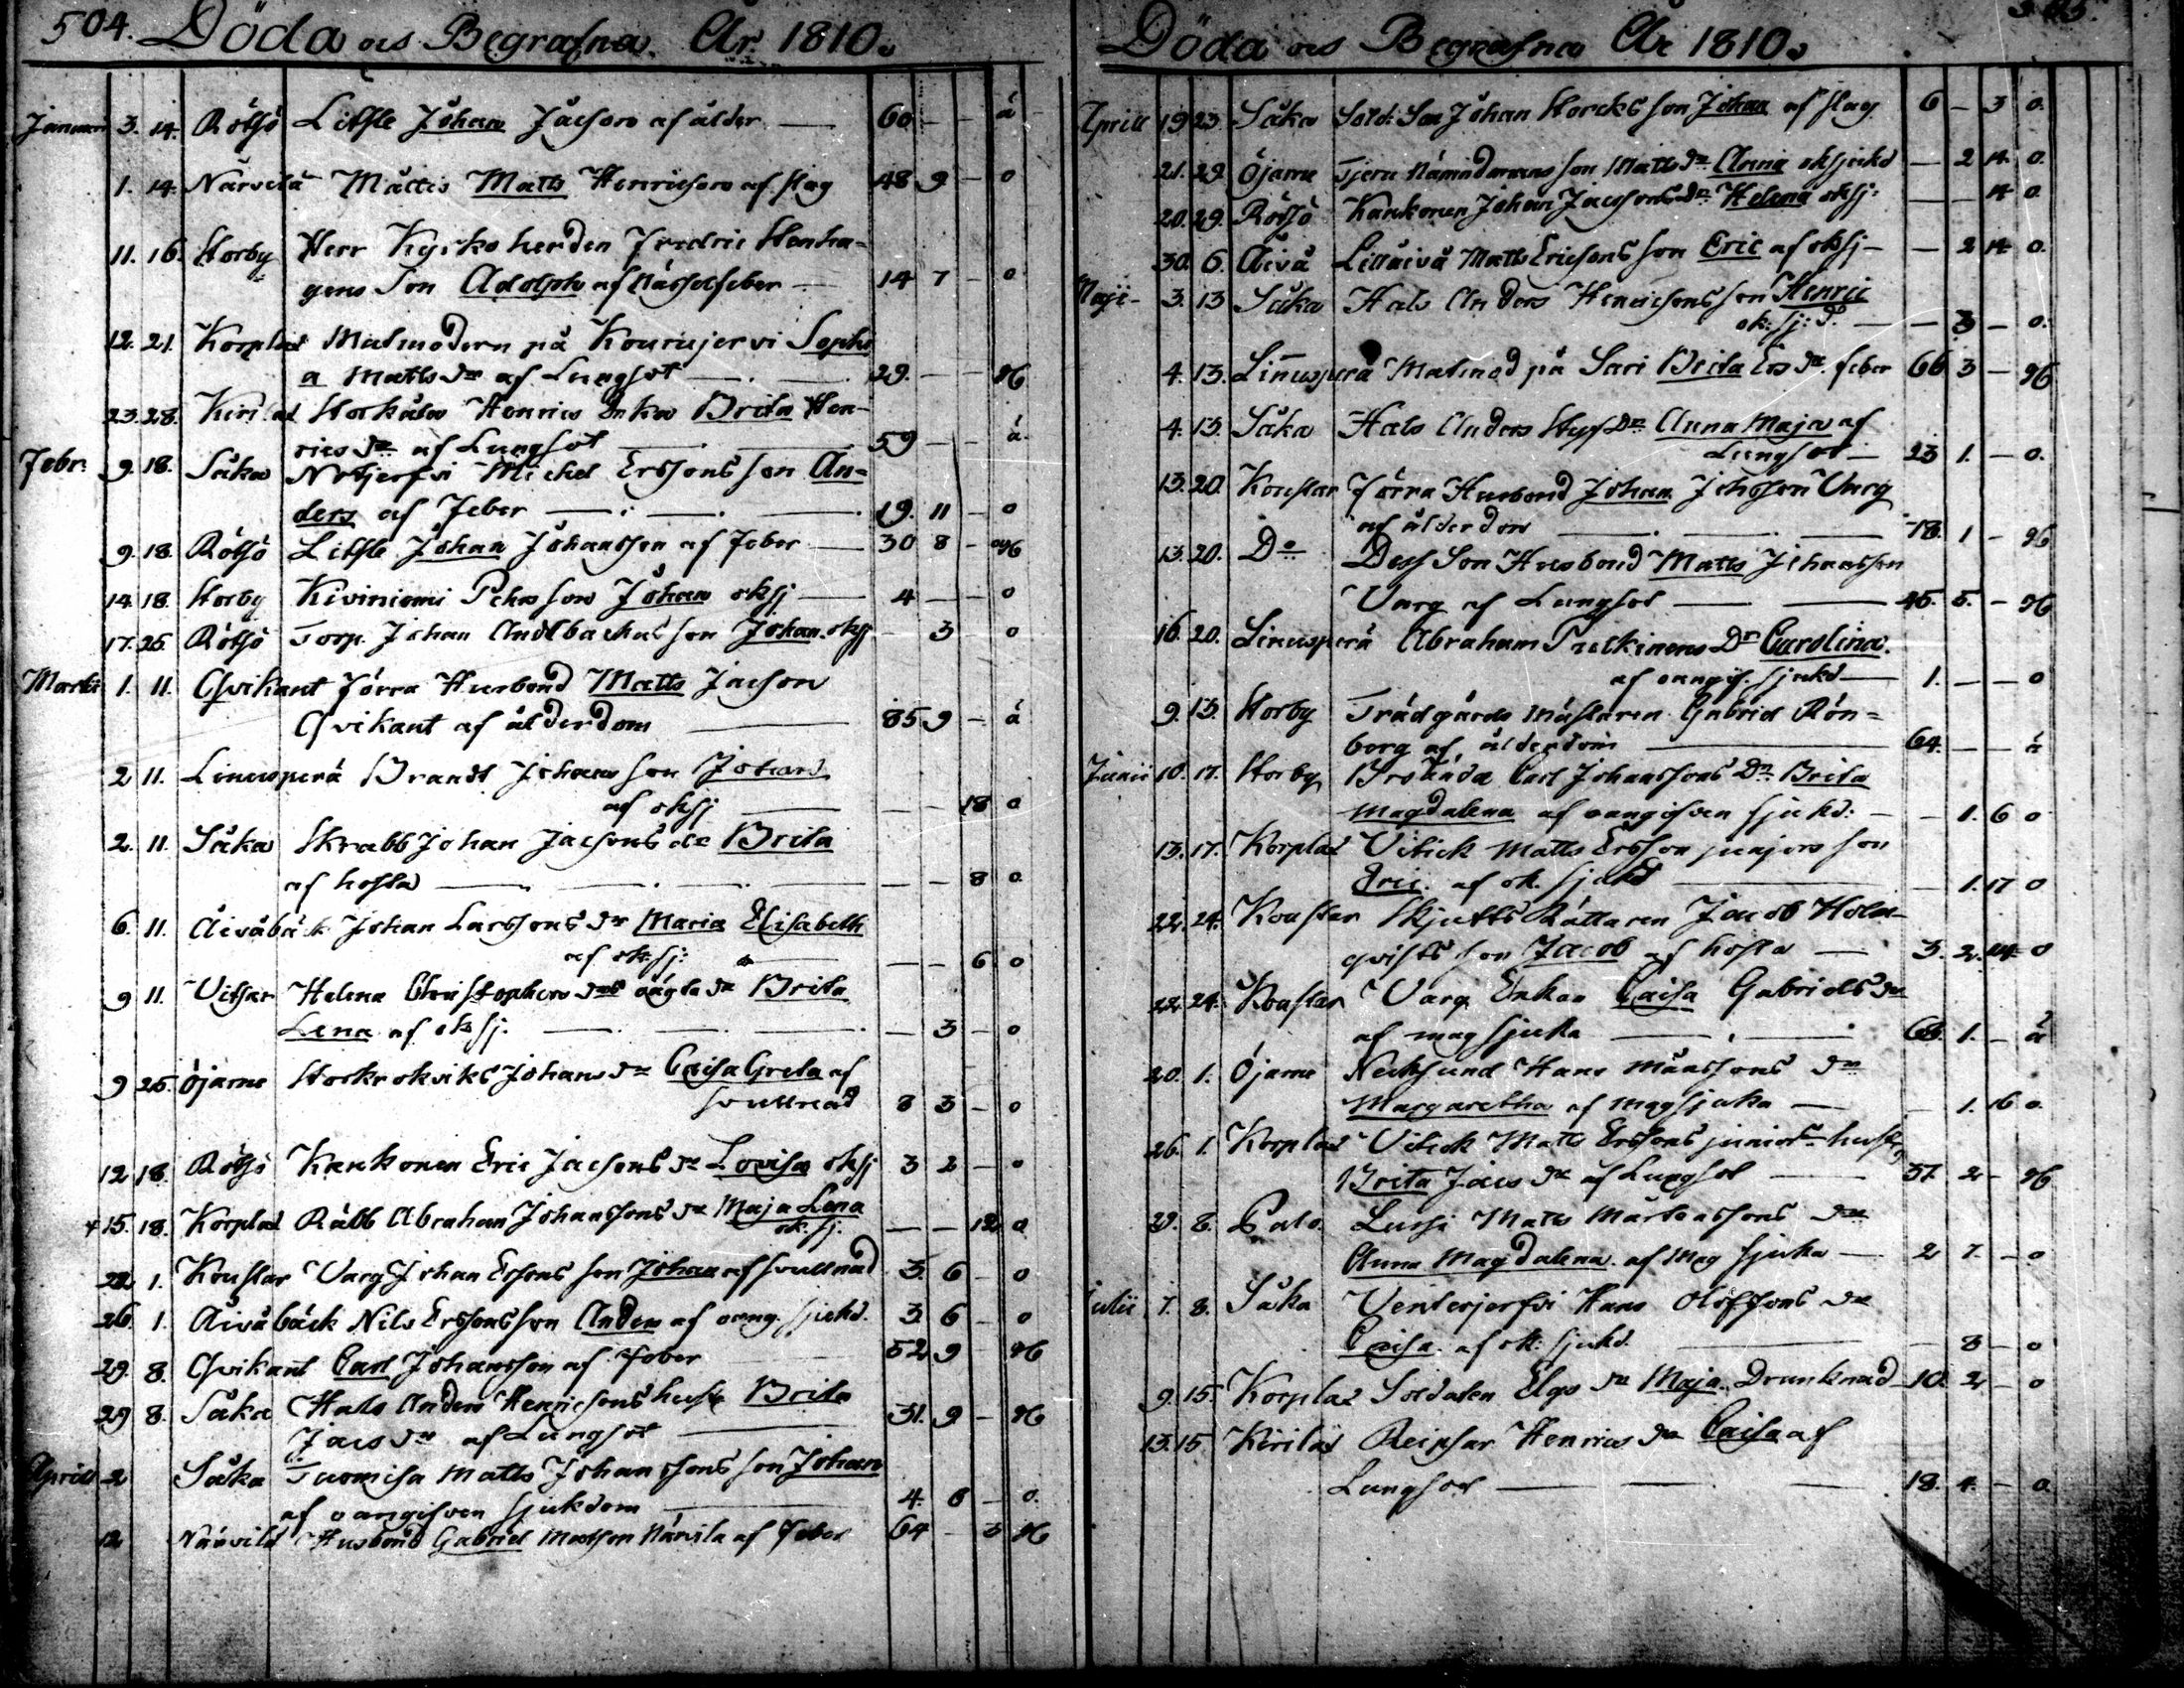 504. Döda och Begrafna. År 1810.
Januari 3. 14. Rötsö Litsle Johan Jacsson af ålder — 60 — — å
1. 14. Närvilä Mattis Matts Henricsson af slag 48 9 — o
11. 16. Storby Herr Kyrko herden Fredric Henha=
gens Son Adolph af Nässelfeber — 14 7 — o
12. 21. Korplax Matmodern på Kourujervi Sophi
a Matts dr af Lungsot — 29. — — g
23. 28. Kirilax Storkåla Henrics Enka Brita Hen-
rics dr af Lungsot — 59 — — å
Febr. 9. 18. Såka Notjerfvi Michel Erssons son An=
ders af Feber — 19. 11 — o
9. 18. Rötsö Litsle Johan Johansson af Feber — 30 8 — g
14. 18. Storby Kiviniemi Pehrs son Johan oksj — 4 — — o
17. 25. Rötsö Torp. Johan Andlbackas son Johan oksj — 3 o
Martii 1. 11. Qvikant Förra Husbond Matts Jacsson
Qvikant af ålderdom — 85 9 — å
2 11. Linusperä Brandt Johans son Johan
af oksj — — — 18 o
2. 11. Såka Skrabb Johan Jacssons dr Brita
af hosta — — — 8 o
6. 11. Äiväbäck Johan Larssons dr Maria Elisabeth
af ok. sj: — — — 6 o
9 11. Vitsar Helena Christophers drs oägta dr Brita
Lena af ok sj. — — 3 — o
9 25. Öjarne Storkrokviks Johans dr Caisa Greta af
svullnad 8 3 — o
12 18. Rötsö Kankonen Eric Jacssons dr Lovisa oksj 3 2 — o
+ 15. 18. Korplax Räbb Abraham Johanssons dr Maja Lena
ok. sj. — — 12 o
22 1. Koustar Varg Johan Erssons son Johan af svullnad 3. 6 — o
26. 1. Äiväbäck Nils Erssons son Anders af oang. sjukd. 3. 6 — o
29. 8. Qvikant Carl Johansson af Feber 52 9 — g
29 8. Såka Hals Anders Henricsons hustr Brita
Jacs dr af Lungsot — 31. 9 — g
Aprill 2 Såka Tuomisa Matts Johanssons son Johan
af oangifven sjukdom — 4. 8 — o.
12 Närvilä Husbond Gabriel Mattson Närvila af Feber 64 — 3 g
Döda och Begrafna År 1810. 505.
Aprill 19. 23. Såka Sold: Son Johan Storcks son Johan af slag 6 — 3 o.
21. 29. Öjarne Tjeru Nämndemans son Matts dr Anna oksjukd — 2 14. o.
20. 29. Rötsö Kankonen Johan Jacssons dr Helena oksj: — — 14 o
30. 6. Äivä Lilläivä Matts Ericsons son Eric af oksj — — 2 14 o.
Maji — 3. 13 Såka Hals Anders Henricssons son Henric
ok: sj: d. — — 3 — o.
4. 13. Linusperä Matmod på Sari Brita Ers dr. feber 66 3 — g
4. 13. Såka Hals Anders Styf Dr Anna Maja af
Lungsot — 23 1. — o.
13. 20. Koustar Förra Husbond Johan Johsson Varg
af ålderdom — 78. 1 — g
13. 20. Do Dess Son Husbond Matts Johansson
Varg af Lungsot — 45. 5. — g
16. 20. Linusperä Abraham Dr Carolina
af oangif. sjukd — 1. — — o
9. 13. Storby Trädgårds Mästaren Gabriel Rön=
berg af ålderdom — 64. — — å
Junii 10. 17. Storby Carl Johanssons Dr Brita
Magdalena af oangifven sjukd: — — 1. 6 o
13. 17. Korplax Vitick Matts Ersson junjors son
Eric. af ok. sjukd — 1. 17 o
22. 24. Koustar Skjutts Rättaren Jacob Holm-
qvists son Jacob af hosta — 3. 2. 14. o
22. 24. Koustar Varg Enkan Caisa Gabriels dr
af magsjuka — 66. 1. — å
20. 1. Öjarne Necksund Hans Månssons dr
Margaretha af magsjuka — — 1. 16 o.
26. 1. Korplax Vitick Matts Erssons juniors hustr
Brita Jacs dr af Lungsot 37 2 — g
29. 8. Palo Lussi Matts Mårtenssons dr
Anna Magdalena af Mag sjuka — 2 7. — o
Julii 7. 8. Såka Venterjerfvi Hans Olofssons dr
Caisa. af ok: sjukd. — 8 — o
9. 15. Korplax Soldaten Elgs dr Maja. Drunknad 10. 2 — o
13. 15. Kirilax Reipsar Henrics dr Caisa af
Lungsot — 18. 4. — o.